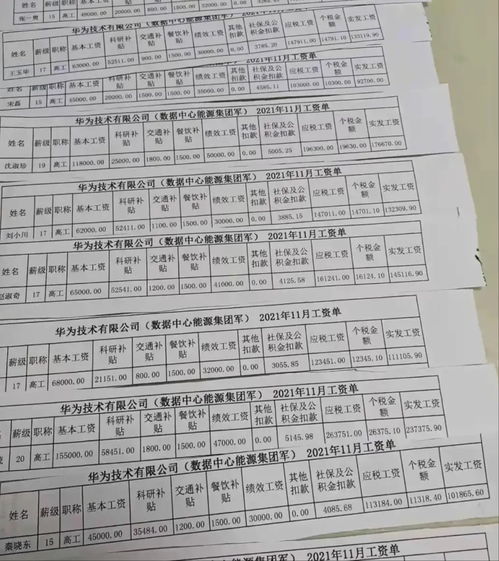 张一奥 15 高工 48000.00 20000.00 800.00
姓名 薪级 职称 基本工资 科研补贴 交通补贴 餐饮补贴 绩效工资 其他扣款 社保及公积金扣款 应税工资 个税金额 实发工资
王玉华 17 高工 63000.00 52511.00 900.00 1500.00 30000.00 0.00 3785.20 147911.00 14791.10 133119.90
宋磊 15 高工 45000.00 20000.00 35000.00 0.00 4585.11 103000.00 10300.00 92700.00
华为技术有限公司（数据中心能源集团军） 2021年11月工资单
姓名 薪级 职称 基本工资 科研补贴 交通补贴 餐饮补贴 绩效工资 其他扣款 社保及公积金扣款 应税工资 个税金额 实发工资
沈淑珍 19 高工 118000.00 25000.00 1800.00 1500.00 50000.00 0.00 5005.25 196300.00 19630.00 176670.00
华为技术有限公司（数据中心能源集团军） 2021年11月工资单
姓名 薪级 职称 基本工资 科研补贴 交通补贴 餐饮补贴 绩效工资 其他扣款 社保及公积金扣款 应税工资 个税金额 实发工资
刘小川 17 高工 62000.00 52411.00 1100.00 1500.00 30000.00 0.00 3885.15 147011.00 14701.10 132309.90
华为技术有限公司（数据中心能源集团军） 2021年11月工资单
姓名 薪级 职称 基本工资 科研补贴 交通补贴 餐饮补贴 绩效工资 其他扣款 社保及公积金扣款 应税工资 个税金额 实发工资
赵淑奇 17 高工 65000.00 52541.00 1200.00 1500.00 41000.00 0.00 4125.58 161241.00 16124.10 145116.90
华为技术有限公司（数据中心能源集团军） 2021年11月工资单
薪级 职称 基本工资 科研补贴 交通补贴 餐饮补贴 绩效工资 其他扣款 社保及公积金扣款 应税工资 个税金额 实发工资
17 高工 68000.00 21151.00 800.00 1500.00 32000.00 0.00 3055.85 123451.00 12345.10 111105.90
华为技术有限公司（数据中心能源集团军） 2021年11月工资单
薪级 职称 基本工资 科研补贴 交通补贴 餐饮补贴 绩效工资 其他扣款 社保及公积金扣款 应税工资 个税金额 实发工资
20 高工 155000.00 58451.00 1800.00 1500.00 47000.00 0.00 5145.98 263751.00 26375.10 237375.90
华为技术有限公司（数据中心能源集团军） 2021年11月工资单
姓名 薪级 职称 基本工资 科研补贴 交通补贴 餐饮补贴 绩效工资 其他扣款 社保及公积金扣款 应税工资 个税金额 实发工资
秦晓东 15 高工 45000.00 35484.00 1200.00 1500.00 30000.00 0.00 4085.68 113184.00 11318.40 101865.60
数据中心能源集团军） 2021年11月工资单